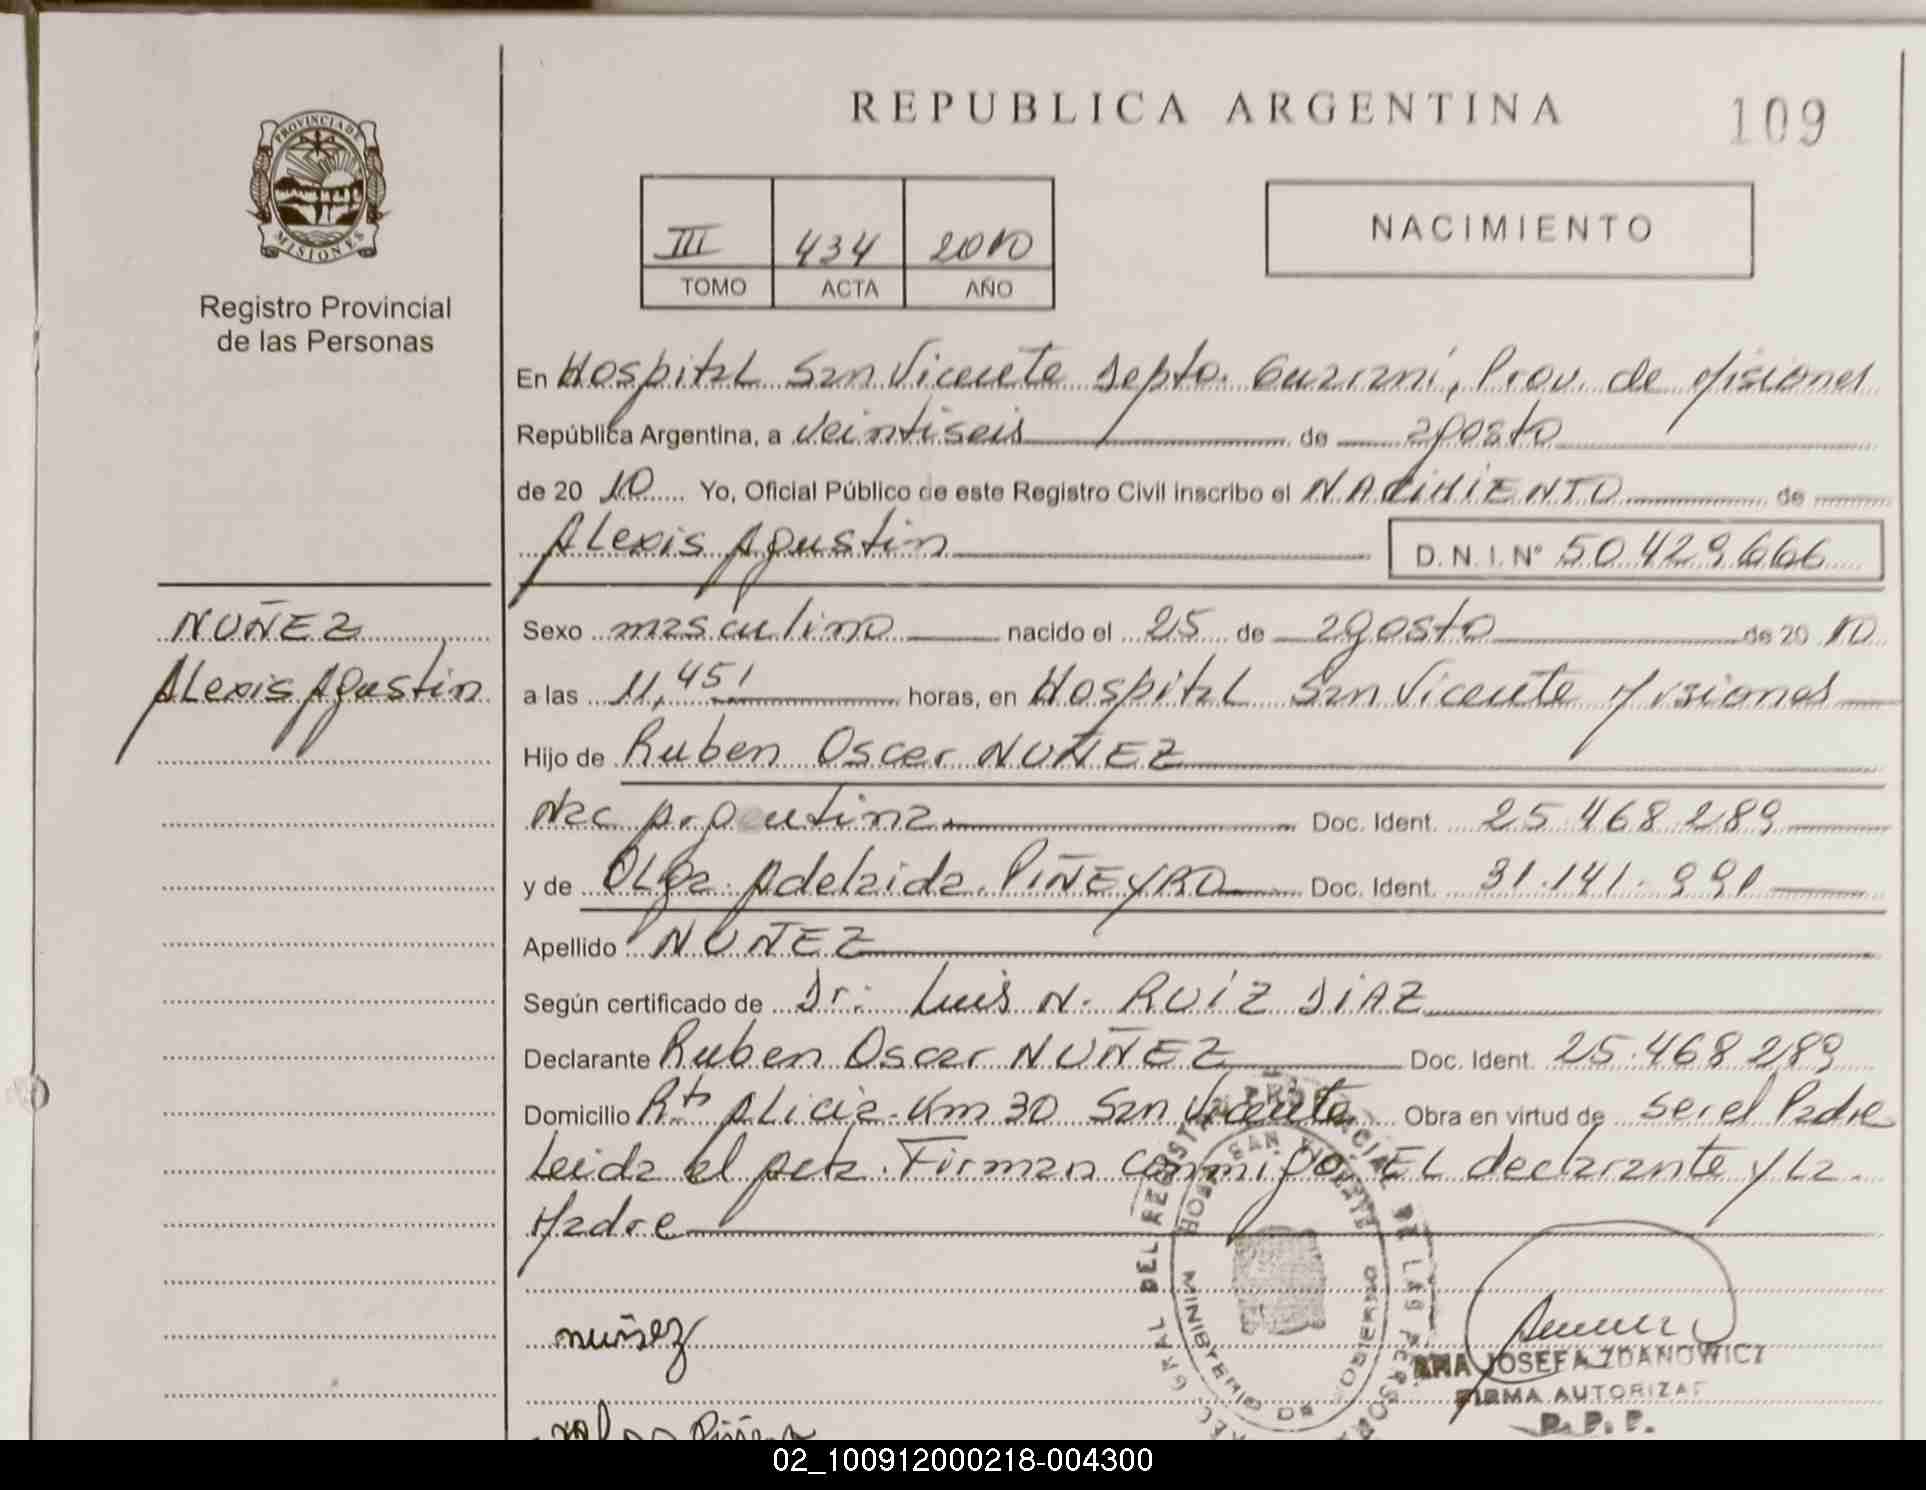 REPUBLICA ARGENTINA
109
PROVINCIA DE
MISIONES
Registro Provincial
de las Personas
III 434 2010
TOMO ACTA AÑO
NACIMIENTO
En Hospital San Vicente Depto. Guaraní, Prov. de Misiones
República Argentina, a veintiseis de agosto
de 20 10 Yo, Oficial Público de este Registro Civil inscribo el NACIMIENTO de
Alexis Agustin D.N.I. N° 50.429.666
NUÑEZ
Alexis Agustin
Sexo masculino nacido el 25 de agosto de 20 10
a las 11,45' horas, en Hospital San Vicente Misiones
Hijo de Ruben Oscar NUÑEZ
Nac Argentina Doc. Ident. 25.468.289
y de Olga Adelaida PIÑEYRO Doc. Ident. 31.141.991
Apellido NUÑEZ
Según certificado de Dr: Luis N. RUIZ DIAZ
Declarante Ruben Oscar NUÑEZ Doc. Ident. 25.468.289
Domicilio Rta Alicia-Km 30 San Vicente Obra en virtud de ser el Padre
Leida el Acta. Firman conmigo EL declarante y La
Madre
nuñez
ANA JOSEFA ZDANOWICZ
FIRMA AUTORIZAD
R. P. P.
HOSP. SAN VICENTE
GRAL DEL REGISTRO PROVINCIAL DE LAS PERSONA
MINISTERIO DE GOBIERNO
02_100912000218-004300